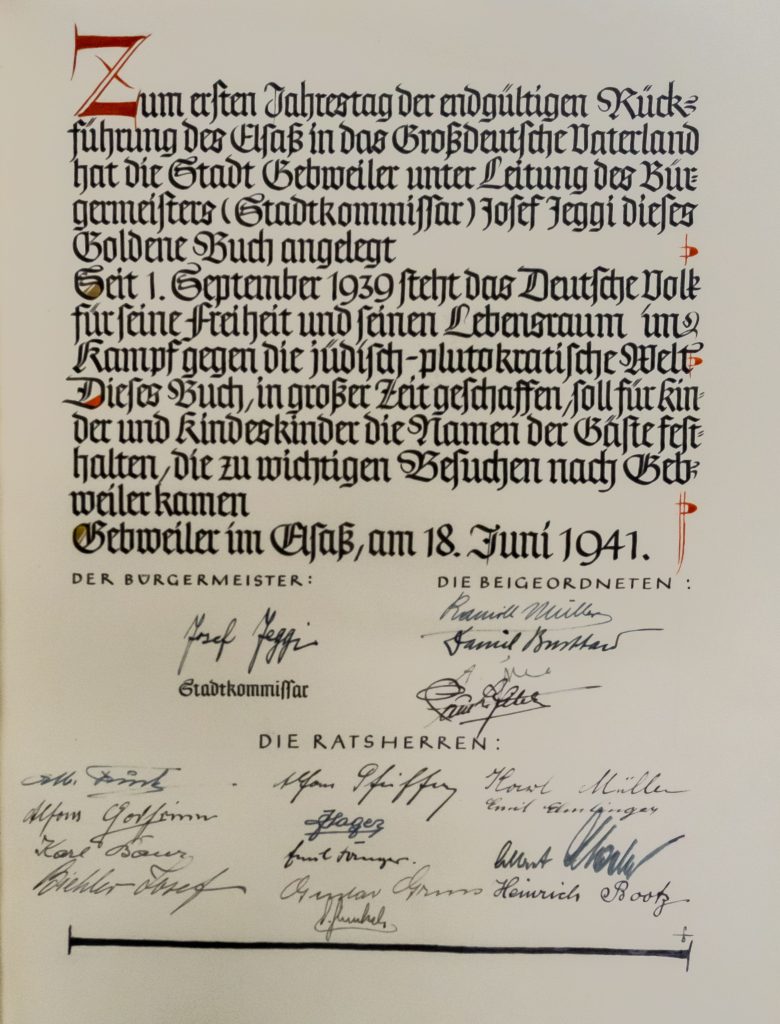 Zum ersten Jahrestag der endgültigen Rück-
führung des Elsaß in das Großdeutsche Vaterland
hat die Stadt Gebweiler unter Leitung des Bür-
germeisters (Stadtkommissar) Josef Jeggi dieses
Goldene Buch angelegt
Seit 1. September 1939 steht das Deutsche Volk
für seine Freiheit und seinen Lebensraum im
Kampf gegen die jüdisch-plutokratische Welt
Dieses Buch, in großer Zeit geschaffen, soll für Kin-
der und Kindeskinder die Namen der Gäste fest-
halten, die zu wichtigen Besuchen nach Geb-
weiler kamen
Gebweiler im Elsaß, am 18. Juni 1941.
DER BÜRGERMEISTER:
Josef Jeggi
Stadtkommissar
DIE BEIGEORDNETEN:
Müller
DIE RATSHERREN:
Alfons Pfeiffer Karl Müller
Alfons Emil
Karl Albert
Biehler Josef Heinrich Bootz